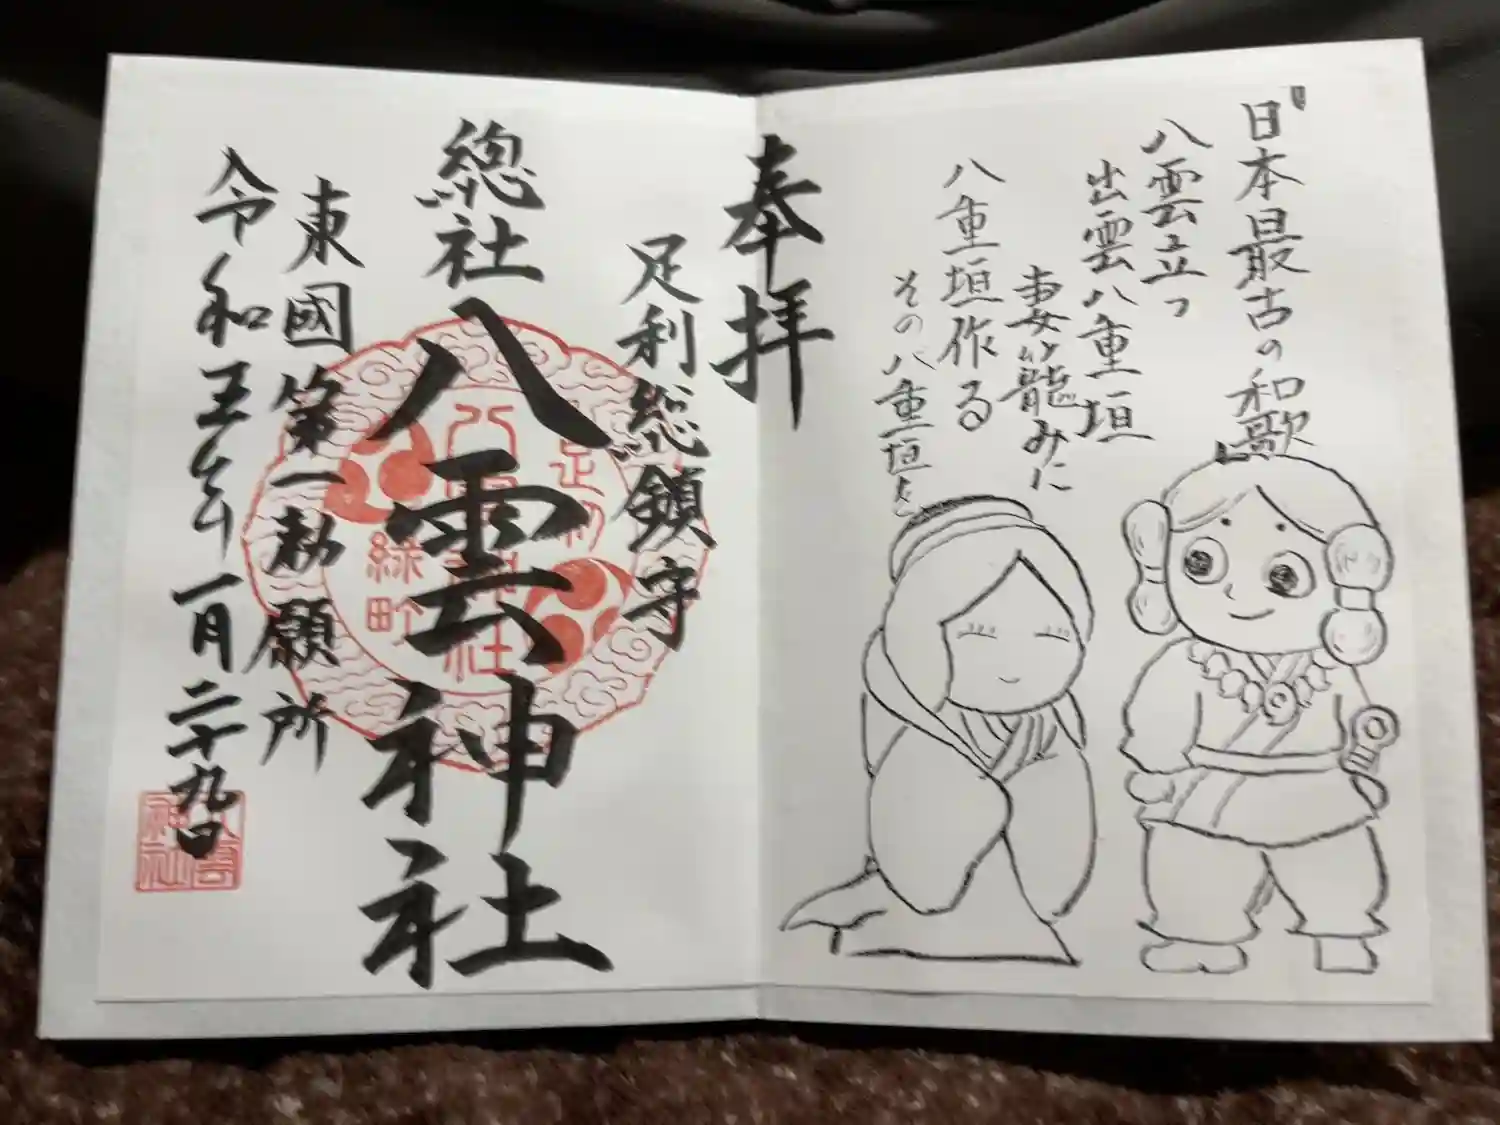 日本最古の和歌
八雲立つ
出雲八重垣
妻籠みに
八重垣作る
その八重垣を
奉拝
足利総鎮守
總社八雲神社
東國第一勅願所
令和五年一月二十九日
緑町
神社